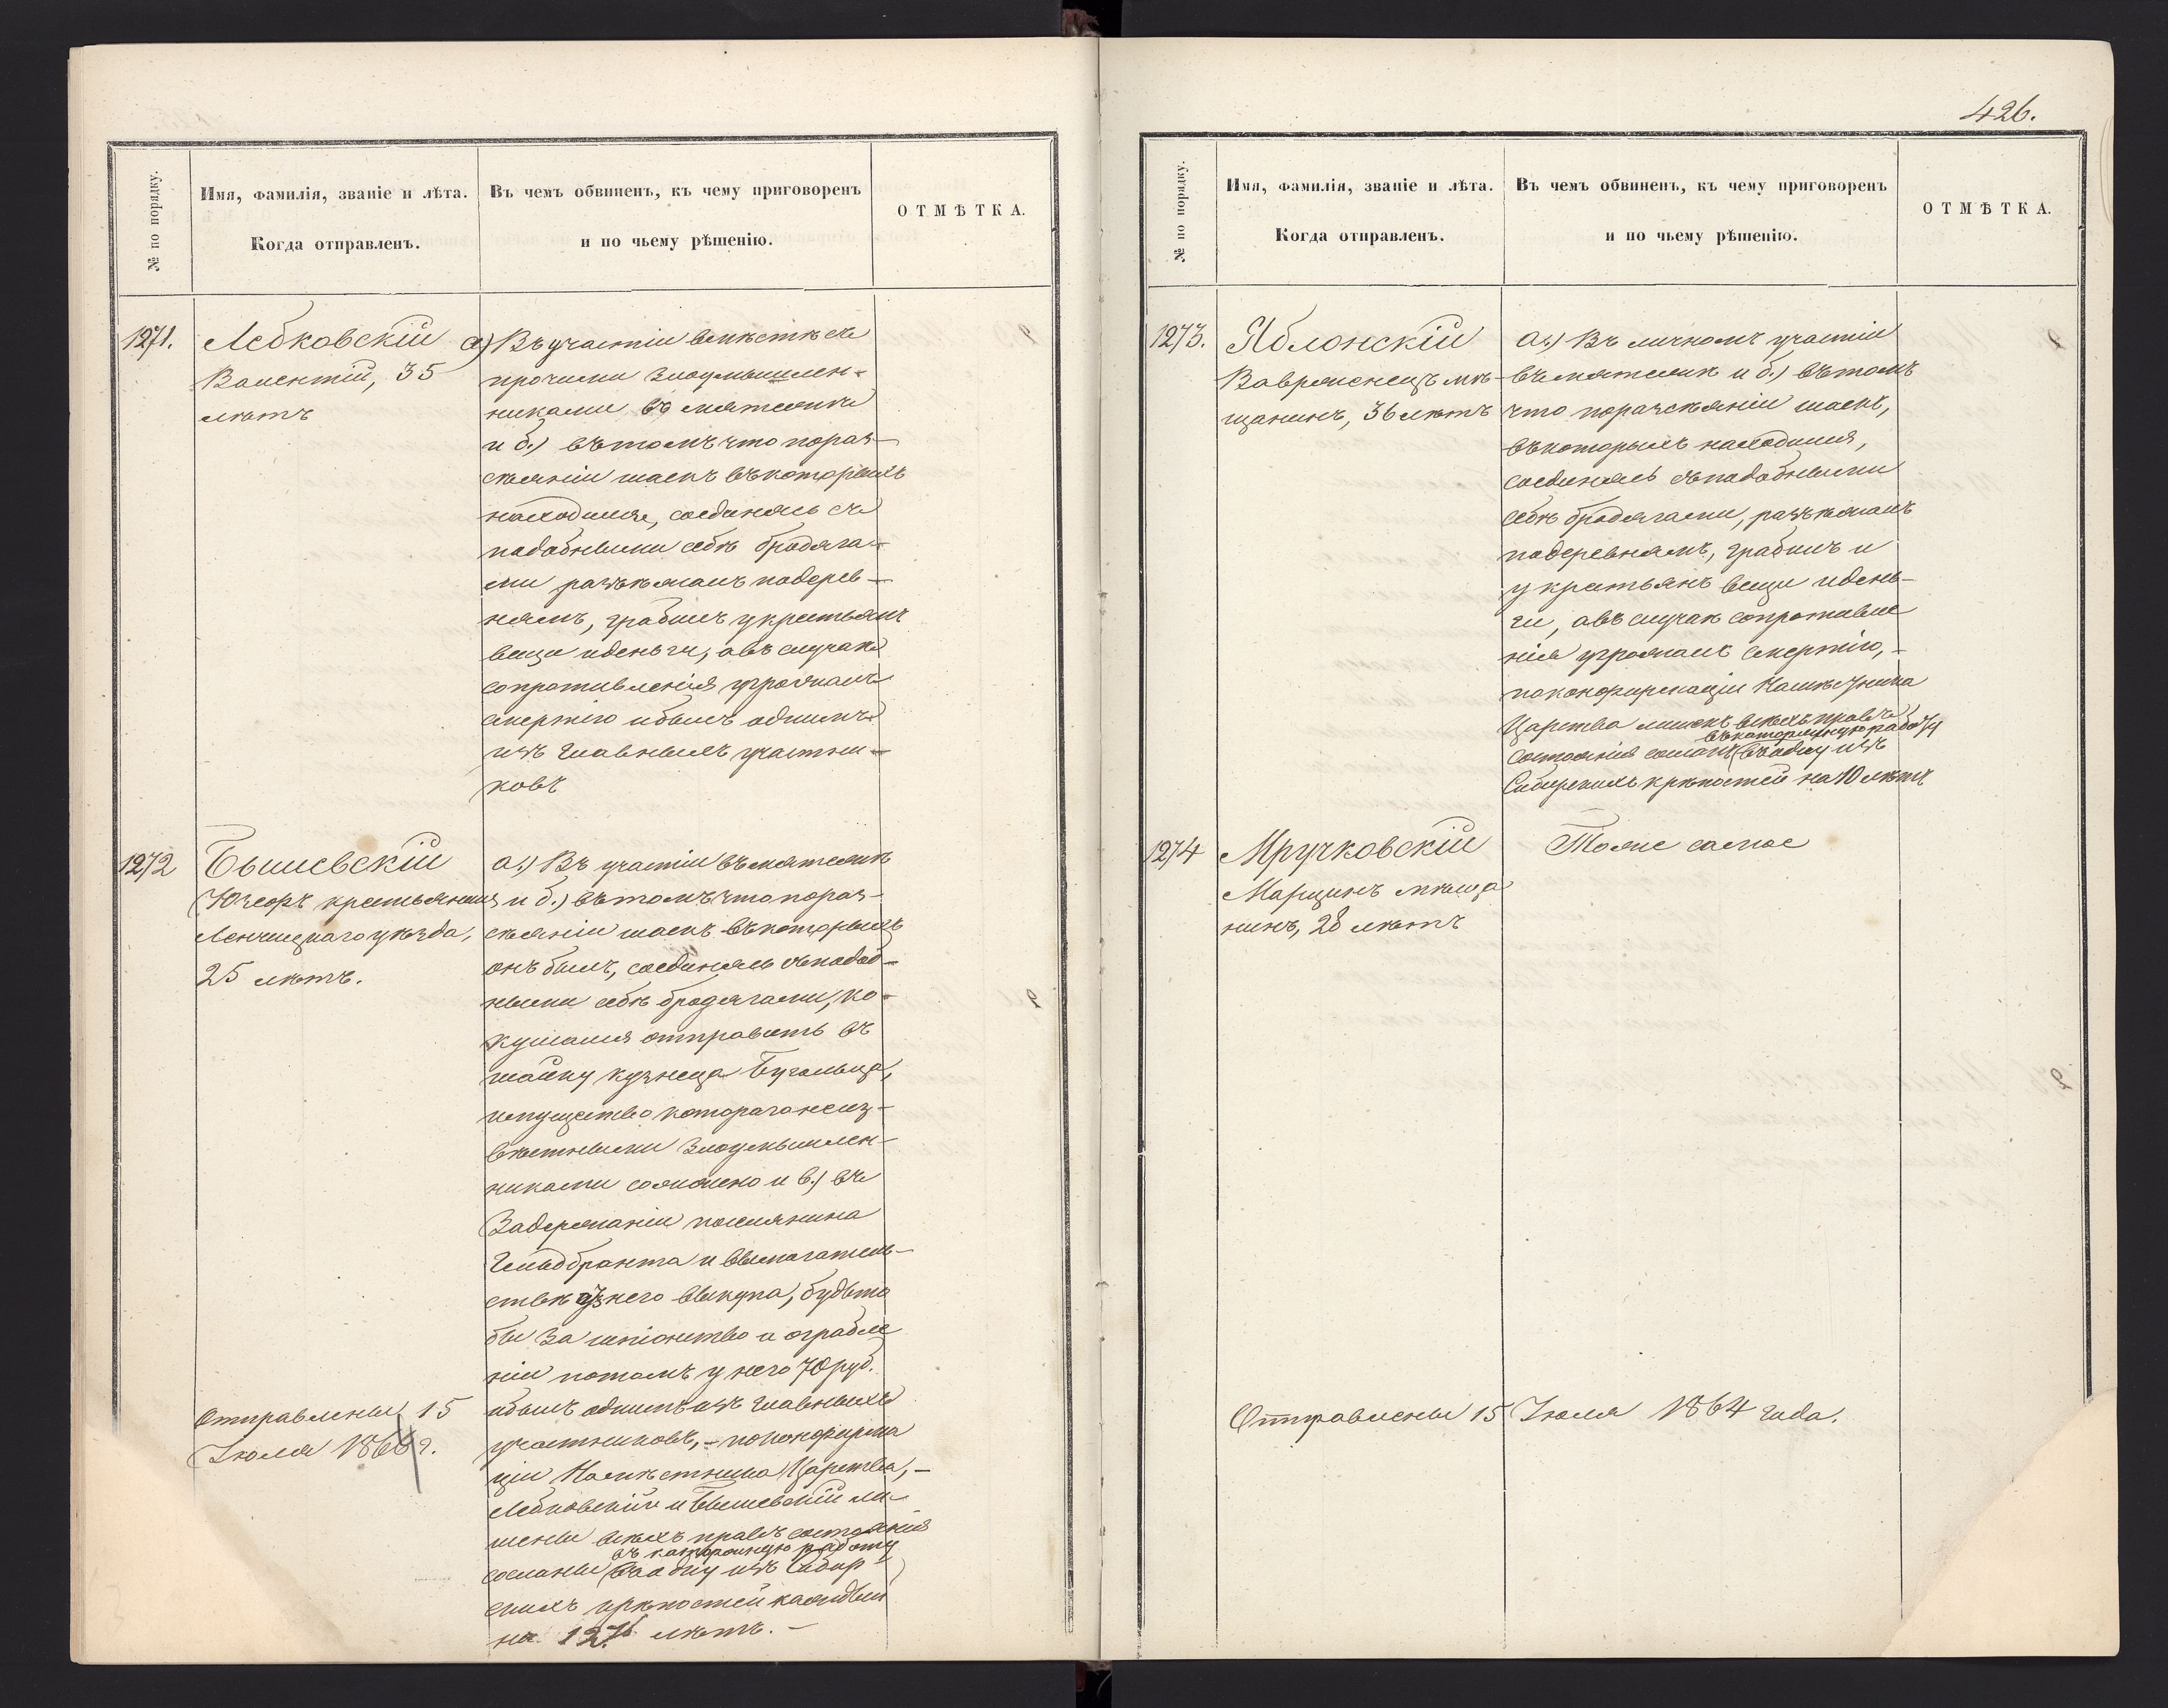 № по порядку.
Имя, фамилія, званіе и лѣта.
Когда отправленъ.
Въ чемъ обвиненъ, къ чему приговоренъ
и по чьему рѣшенію.
ОТМѢТКА.
1271.
Лебковскій
Валентій, 35
лѣтъ
а) Въ участіи вмѣстѣ съ
прочими злоумышлен-
никами въ мятежѣ
и б.) въ томъ что по раз-
сѣяніи шаекъ въ которыхъ
находился, соединясь съ
подобными себѣ бродяга-
ми разъѣзжалъ по дерев-
нямъ, грабилъ у крестьянъ
вещи и деньги, а въ случаѣ
сопротивленія угрожалъ
смертію и былъ однимъ
изъ главныхъ участни-
ковъ
1272
Бышевскій
Юзефъ крестьянинъ
Ленчицкаго уѣзда,
25 лѣтъ.
а.) Въ участіи въ мятежѣ
и б.) въ томъ что по раз-
сѣяніи шаекъ въ которыхъ
онъ былъ, соединясь съ подоб-
ными себѣ бродягами, по-
кушался отправить въ
шайку кузнеца
имущество котораго неиз-
вѣстными злоумышлен-
никами сожжено и в.) въ
задержаніи поселянина
Гильдбранта и вымогатель-
ствѣ у него выкупа, будто
бы за шпіонство и ограбле
ніи потомъ у него 70 руб.
и былъ однимъ изъ главныхъ
участниковъ, - по конфирма
ціи Намѣстника Царства, -
Лебковскій и Бышевскій ли-
шены всѣхъ правъ состоянія
въ каторжную работу
сосланы въ одну изъ Сибир
скихъ крѣпостей каждый
на 12 лѣтъ. -
Отправлены 15
Іюля
426.
№ по порядку.
Имя, фамилія, званіе и лѣта.
Когда отправленъ.
Въ чемъ обвиненъ, къ чему приговоренъ
и по чьему рѣшенію.
ОТМѢТКА.
1273.
Яблонскій
Вавржинецъ мѣ-
щанинъ, 36 лѣтъ
а.) Въ личномъ участіи
въ мятежѣ и б.) въ томъ
что по разсѣяніи шаекъ,
въ которыхъ находился,
соединясь съ подобными
себѣ бродягами, разъѣзжалъ
по деревнямъ, грабилъ и
у крестьянъ вещи и день-
ги, а въ случаѣ сопротивле
нія угрожалъ смертію, -
по конфирмаціи Намѣстника
Царства лишенъ всѣхъ правъ
въ каторжную работу
состоянія сосланъ въ одну изъ
Сибирскихъ крѣпостей на 10 лѣтъ
1274
Мручковскій
Марцинъ мѣща
нинъ, 28 лѣтъ
Тоже самое
Отправлены 15 Іюля 1864 года.